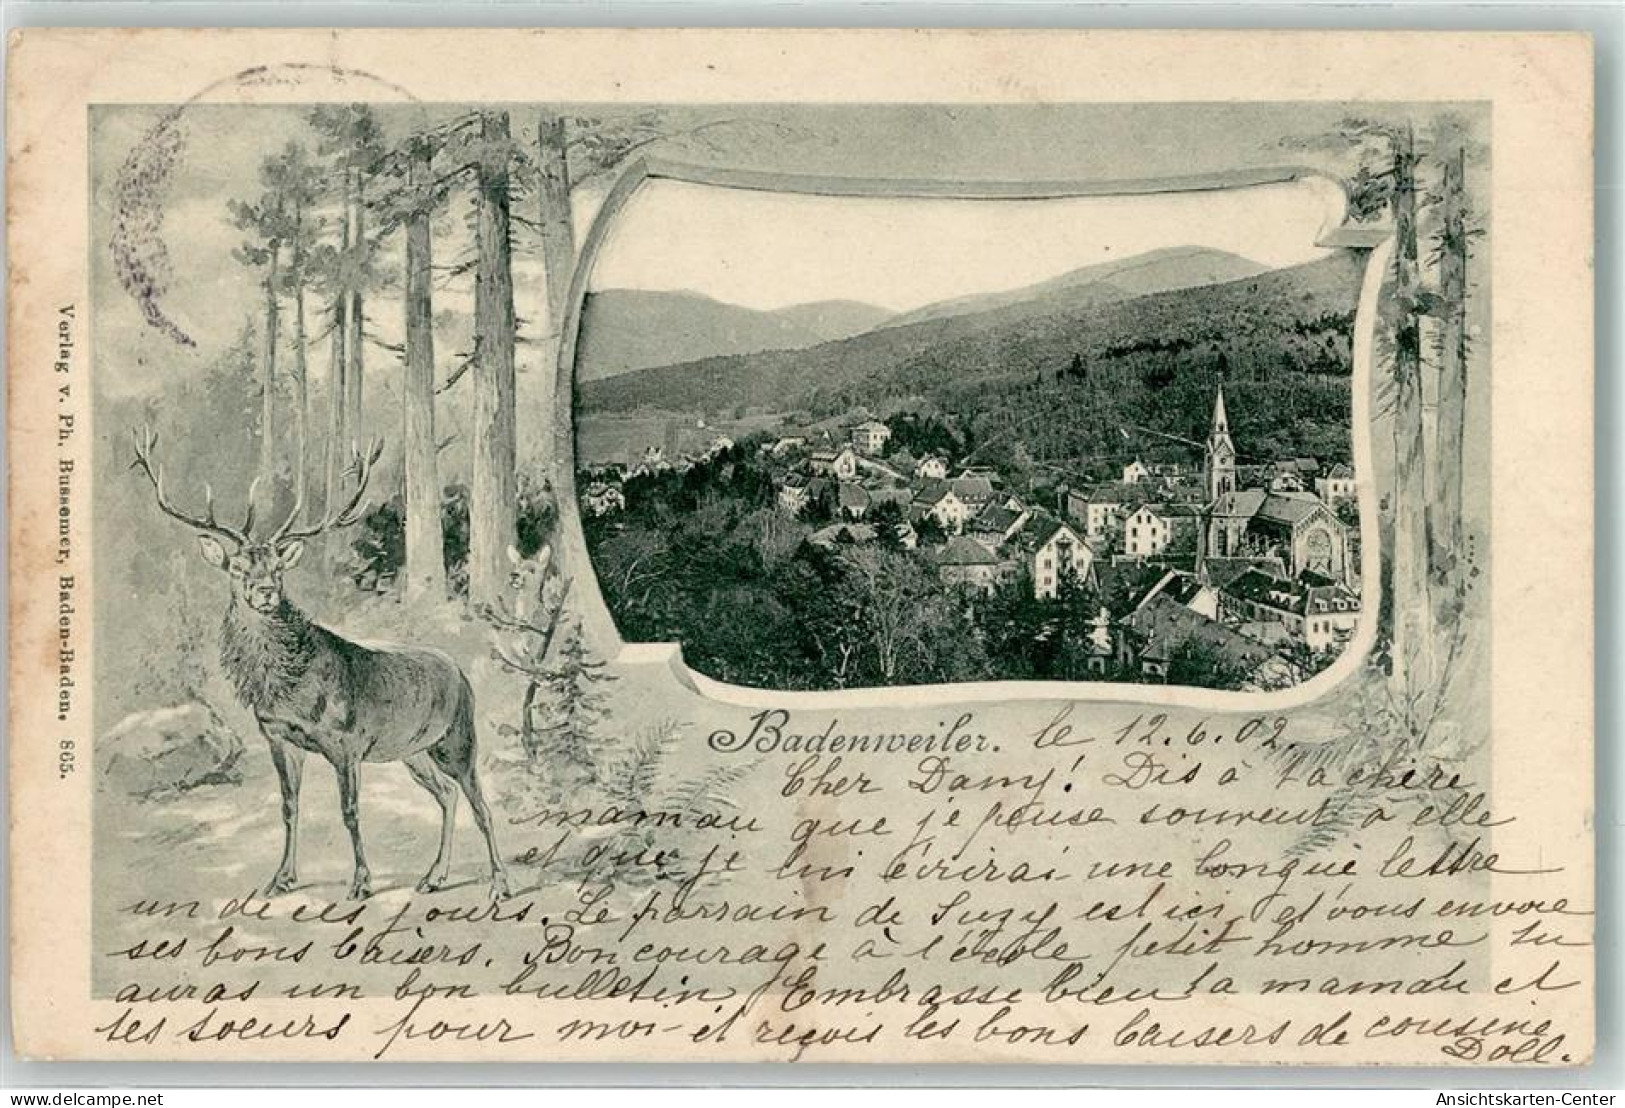 Verlag v. Ph. Bussemer, Baden-Baden. 865.
Badenweiler. le 12.6.02.
Cher Dany! Dis à ta chère
maman que je pense souvent à elle
et que je lui écrirai une longue lettre
un de ces jours. Le parrain de Suzy est ici et vous envoie
ses bons baisers. Bon courage à l'école petit homme tu
auras un bon bulletin. Embrasse bien ta maman et
tes soeurs pour moi et reçois les bons baisers de cousine
Doll.
delcampe.net
Ansichtskarten-Center